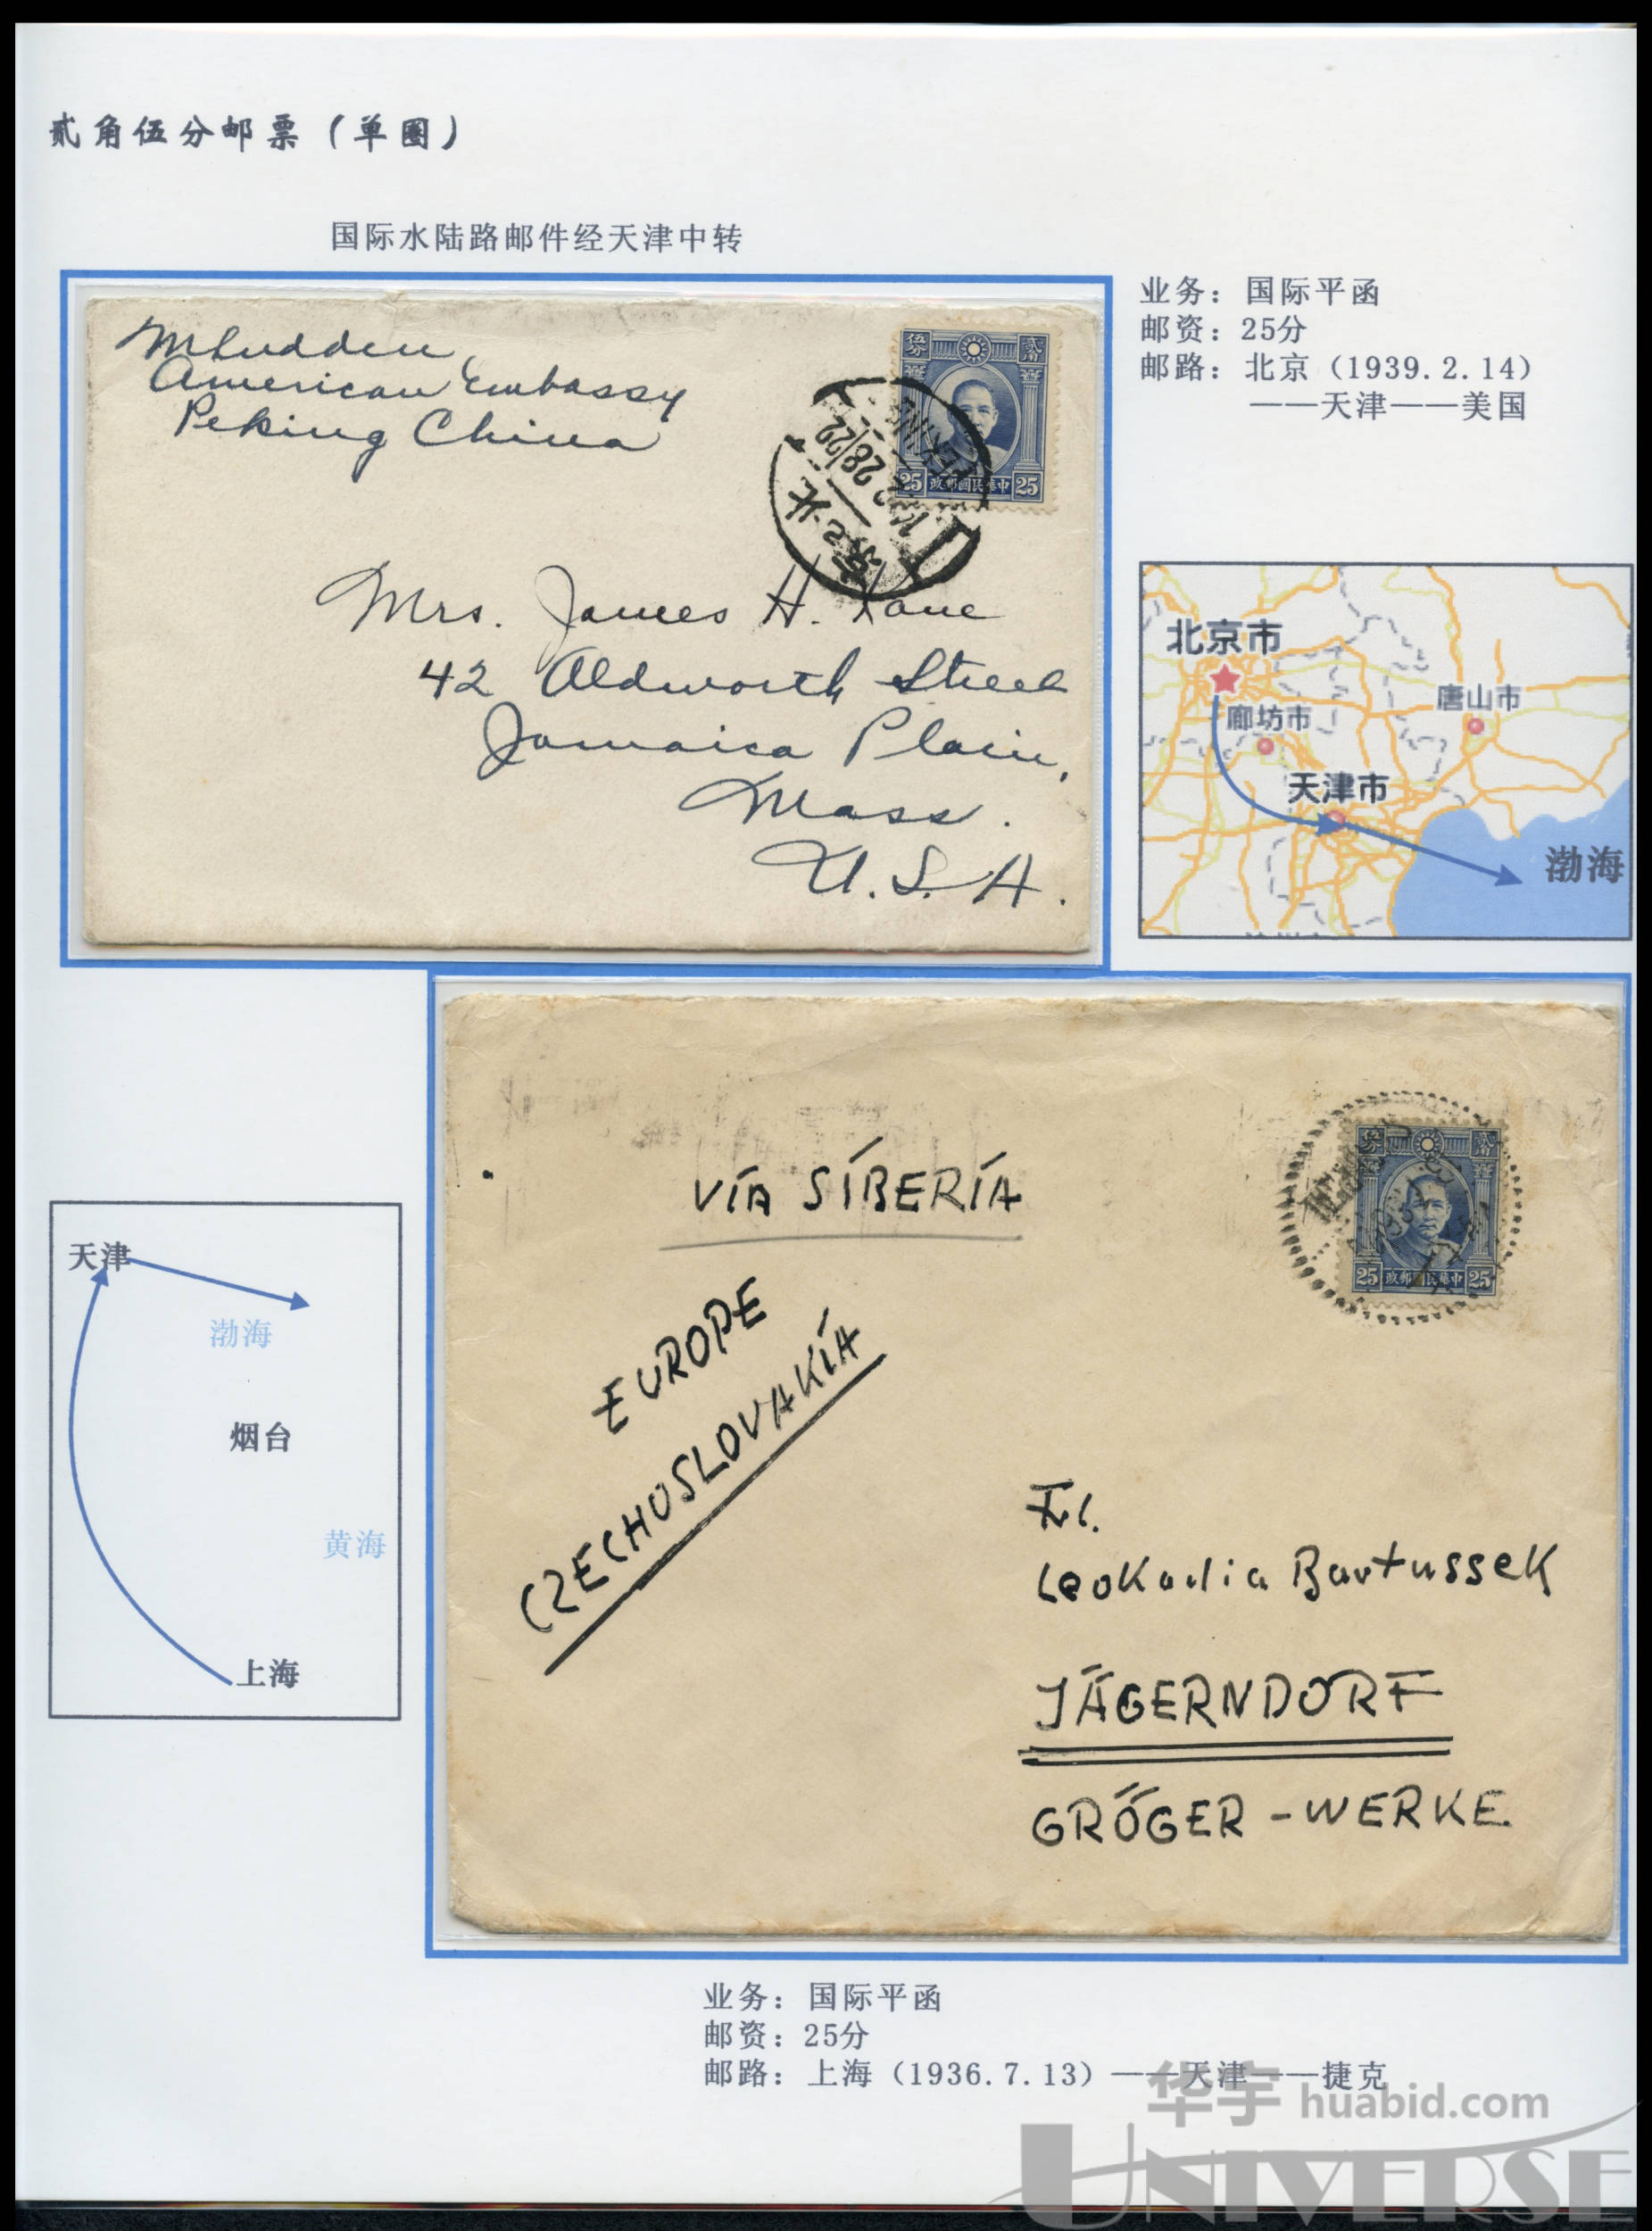 贰角伍分邮票（单圈）
国际水陆路邮件经天津中转
American Embassy
Peking China
25 中華民國郵政 25
PEKING
28 22
北京
Mrs. James H. Kane
42 Aldworth Street
Jamaica Plain,
Mass.
U.S.A.
业务：国际平函
邮资：25分
邮路：北京（1939.2.14）
——天津——美国
北京市
廊坊市
唐山市
天津市
渤海
VIA SIBERIA
EUROPE
CZECHOSLOVAKIA
25 中華民國郵政 25
Frl.
Leokadia Bartussek
JÄGERNDORF
GRÖGER-WERKE
天津
渤海
烟台
黄海
上海
业务：国际平函
邮资：25分
邮路：上海（1936.7.13）——天津——捷克
华宇 huabid.com
UNIVERSE